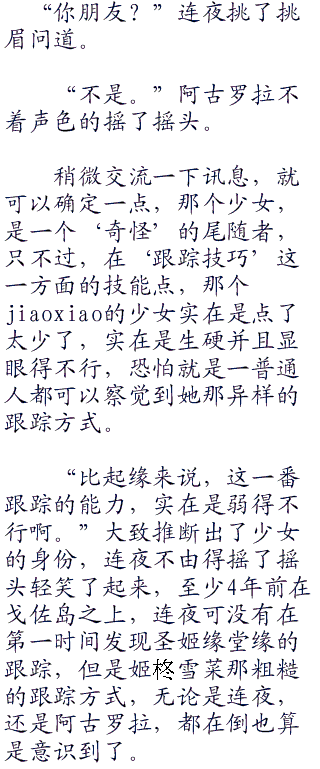 “你朋友？”连夜挑了挑
眉问道。
“不是。”阿古罗拉不
着声色的摇了摇头。
稍微交流一下讯息，就
可以确定一点，那个少女，
是一个‘奇怪’的尾随者，
只不过，在‘跟踪技巧’这
一方面的技能点，那个
jiaoxiao的少女实在是点了
太少了，实在是生硬并且显
眼得不行，恐怕就是一普通
人都可以察觉到她那异样的
跟踪方式。
“比起缘来说，这一番
跟踪的能力，实在是弱得不
行啊。”大致推断出了少女
的身份，连夜不由得摇了摇
头轻笑了起来，至少4年前在
戈佐岛之上，连夜可没有在
第一时间发现圣姬缘堂缘的
跟踪，但是姬柊雪菜那粗糙
的跟踪方式，无论是连夜，
还是阿古罗拉，都在倒也算
是意识到了。